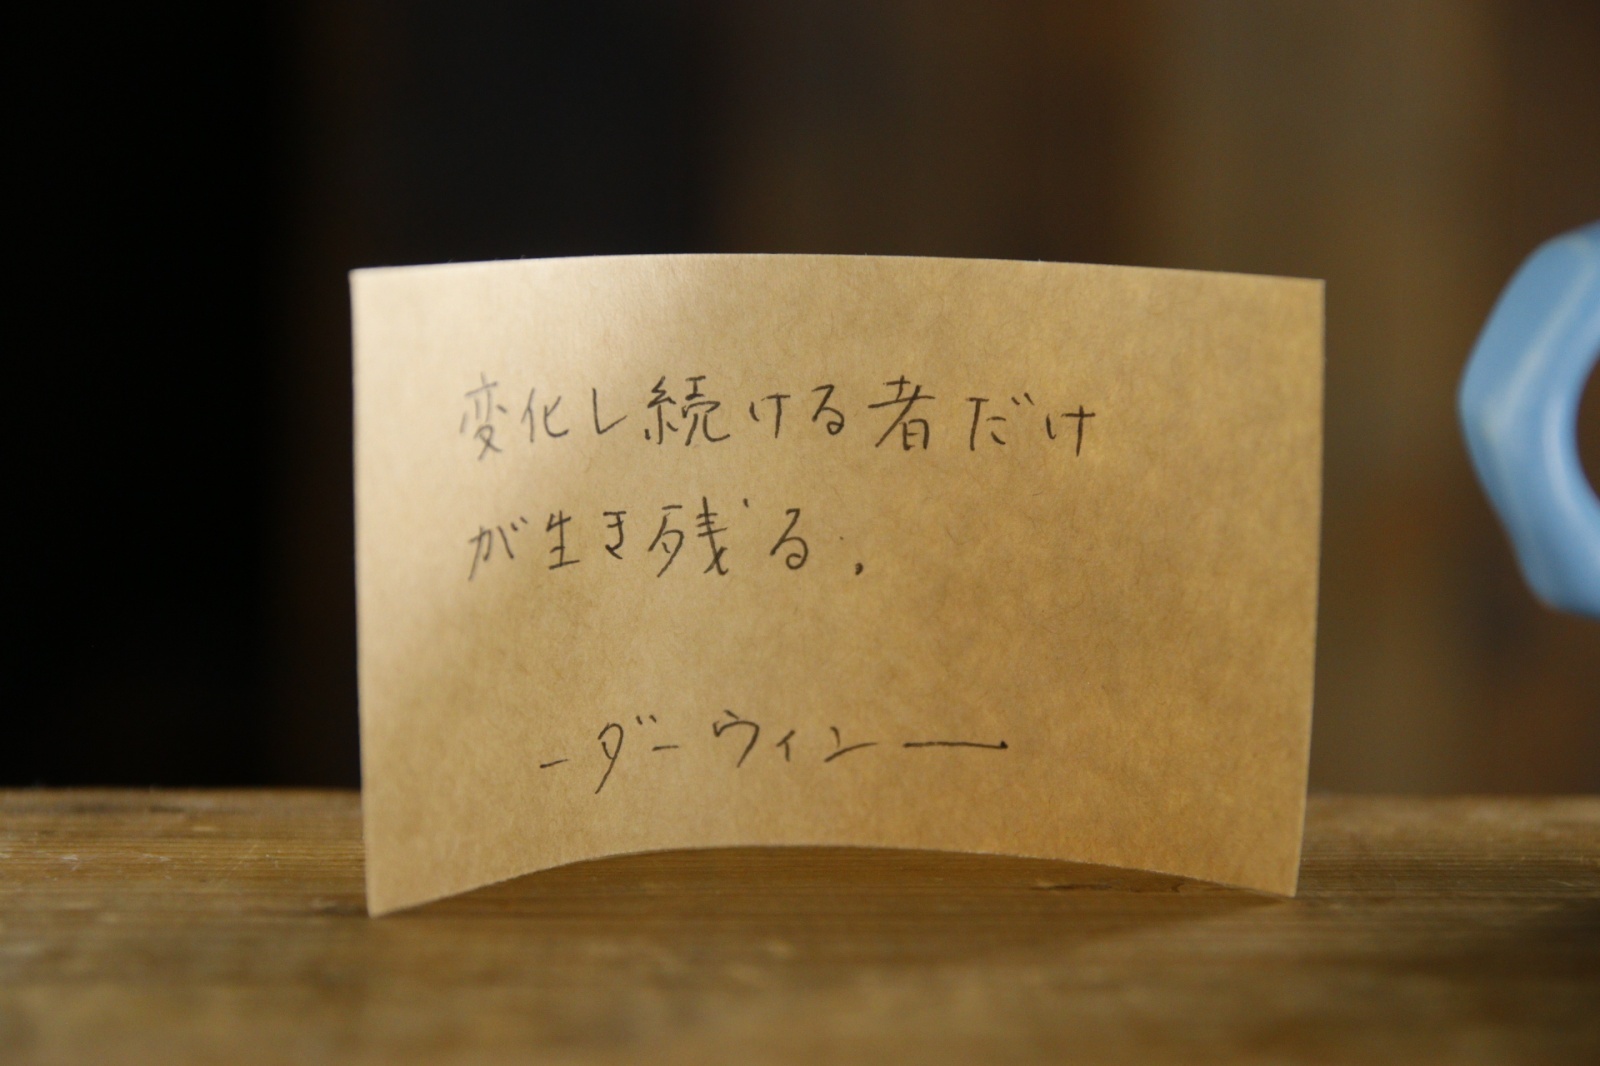 変化し続ける者だけ
が生き残る.
-ダーウィン—